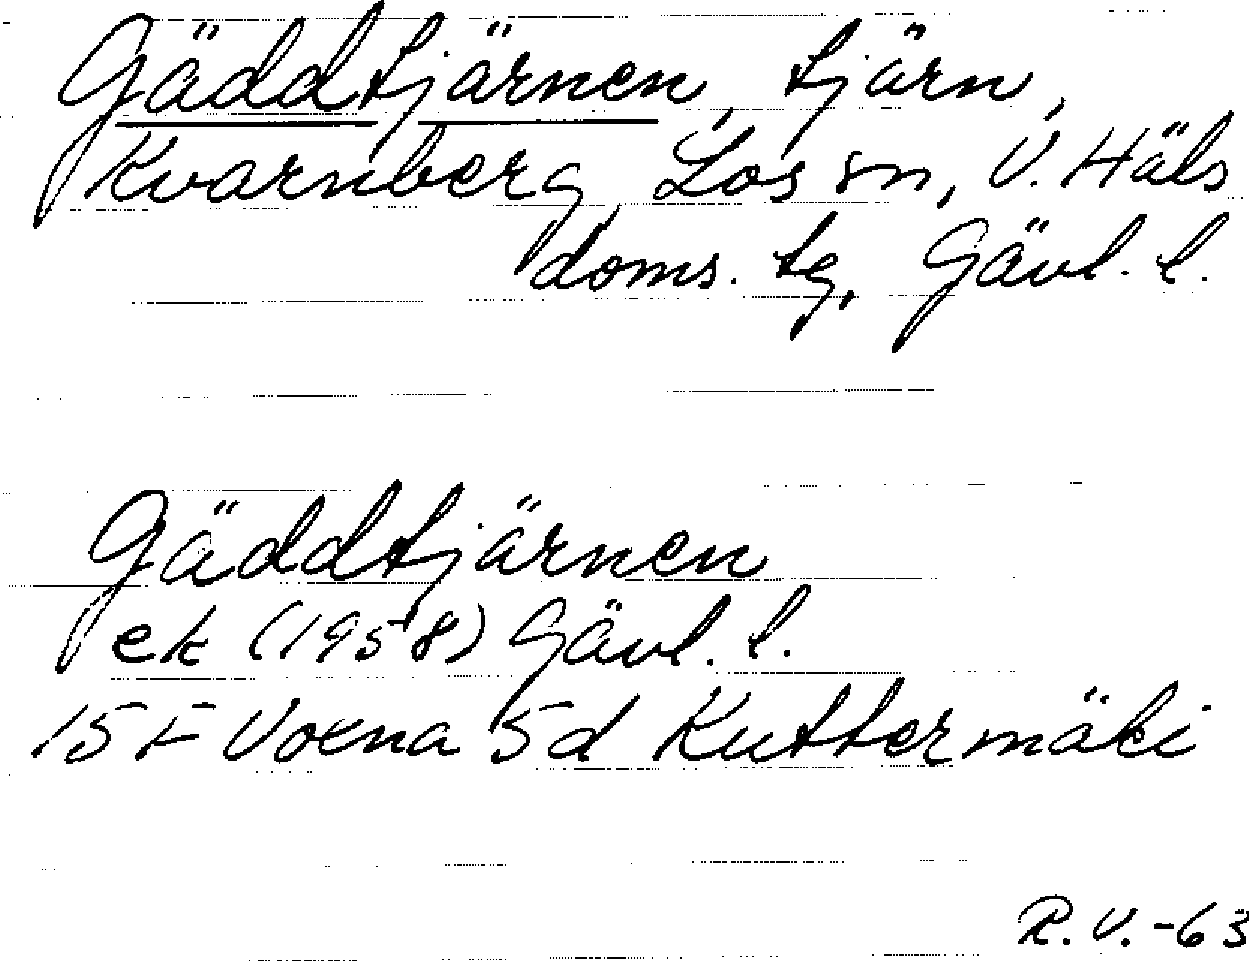 Gäddtjärnen, tjärn,
Kvarnberg, Los sn, V. Häls
doms. tg, Gävl. l.
Gäddtjärnen
ek (1958) Gävl. l.
15 F Voxna 5d Kuttermäki
R. V. -63